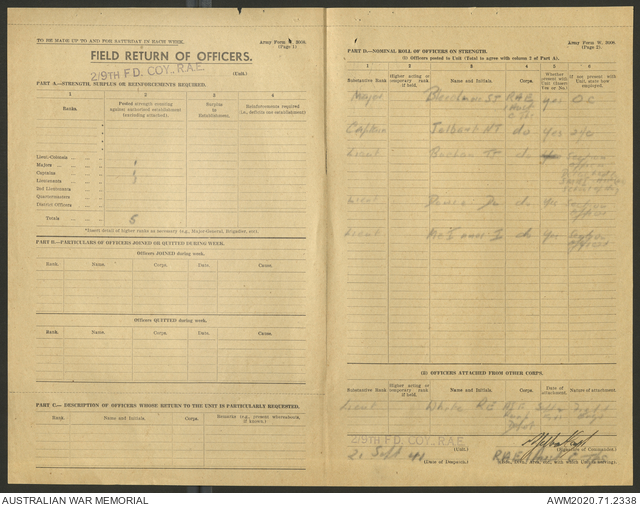 TO BE MADE UP TO AND FOR SATURDAY IN EACH WEEK.
Army Form 2009.
(Page 1)
FIELD RETURN OF OFFICERS.
2/9TH FD. COY. R.A.E.
(Unit.)
PART A.—STRENGTH, SURPLUS OR REINFORCEMENTS REQUIRED.
1 2 3 4
Ranks.
Posted strength counting against authorised establishment (excluding attached).
Surplus to Establishment.
Reinforcements required (i.e., deficits see establishment)
Lieut.-Colonels
Majors 1
Captains 1
Lieutenants 3
2nd Lieutenants
Quartermasters
District Officers
Totals 5
*Insert detail of higher ranks as necessary (e.g., Major-General, Brigadier, etc.).
PART B.—PARTICULARS OF OFFICERS JOINED OR QUITTED DURING WEEK.
Officers JOINED during week.
Rank. Name. Corps. Date. Cause.
Officers QUITTED during week.
Rank. Name. Corps. Date. Cause.
PART C.—DESCRIPTION OF OFFICERS WHOSE RETURN TO THE UNIT IS PARTICULARLY REQUESTED.
Rank. Name and Initials. Corps. Remarks (e.g., present whereabouts, if known.)
Army Form W. 2009.
(Page 2)
PART D.—NOMINAL ROLL OF OFFICERS ON STRENGTH.
(i) Officers posted to Unit (Total to agree with column 2 of Part A).
1 2 3 4 5 6
Substantive Rank
Higher acting or temporary rank if held.
Name and Initials.
Corps.
Whether present with Unit (Answer Yes or No.)
If not present with Unit, state how employed.
Major ST RAE yes OC
Captain Talbot NT do yes
Lieut do Section officer
Lieut do yes Section officer
Lieut do yes Section officer
(ii) OFFICERS ATTACHED FROM OTHER CORPS.
Substantive Rank
Higher acting or temporary rank if held.
Name and Initials.
Corps.
Date of attachment.
Nature of attachment.
Lieut White RE
2/9TH FD. COY. R.A.E.
(Unit.)
(Signature of Commander.)
21 Sept 41
(Date of Despatch.)
RAE
AUSTRALIAN WAR MEMORIAL
AWM2020.71.2338